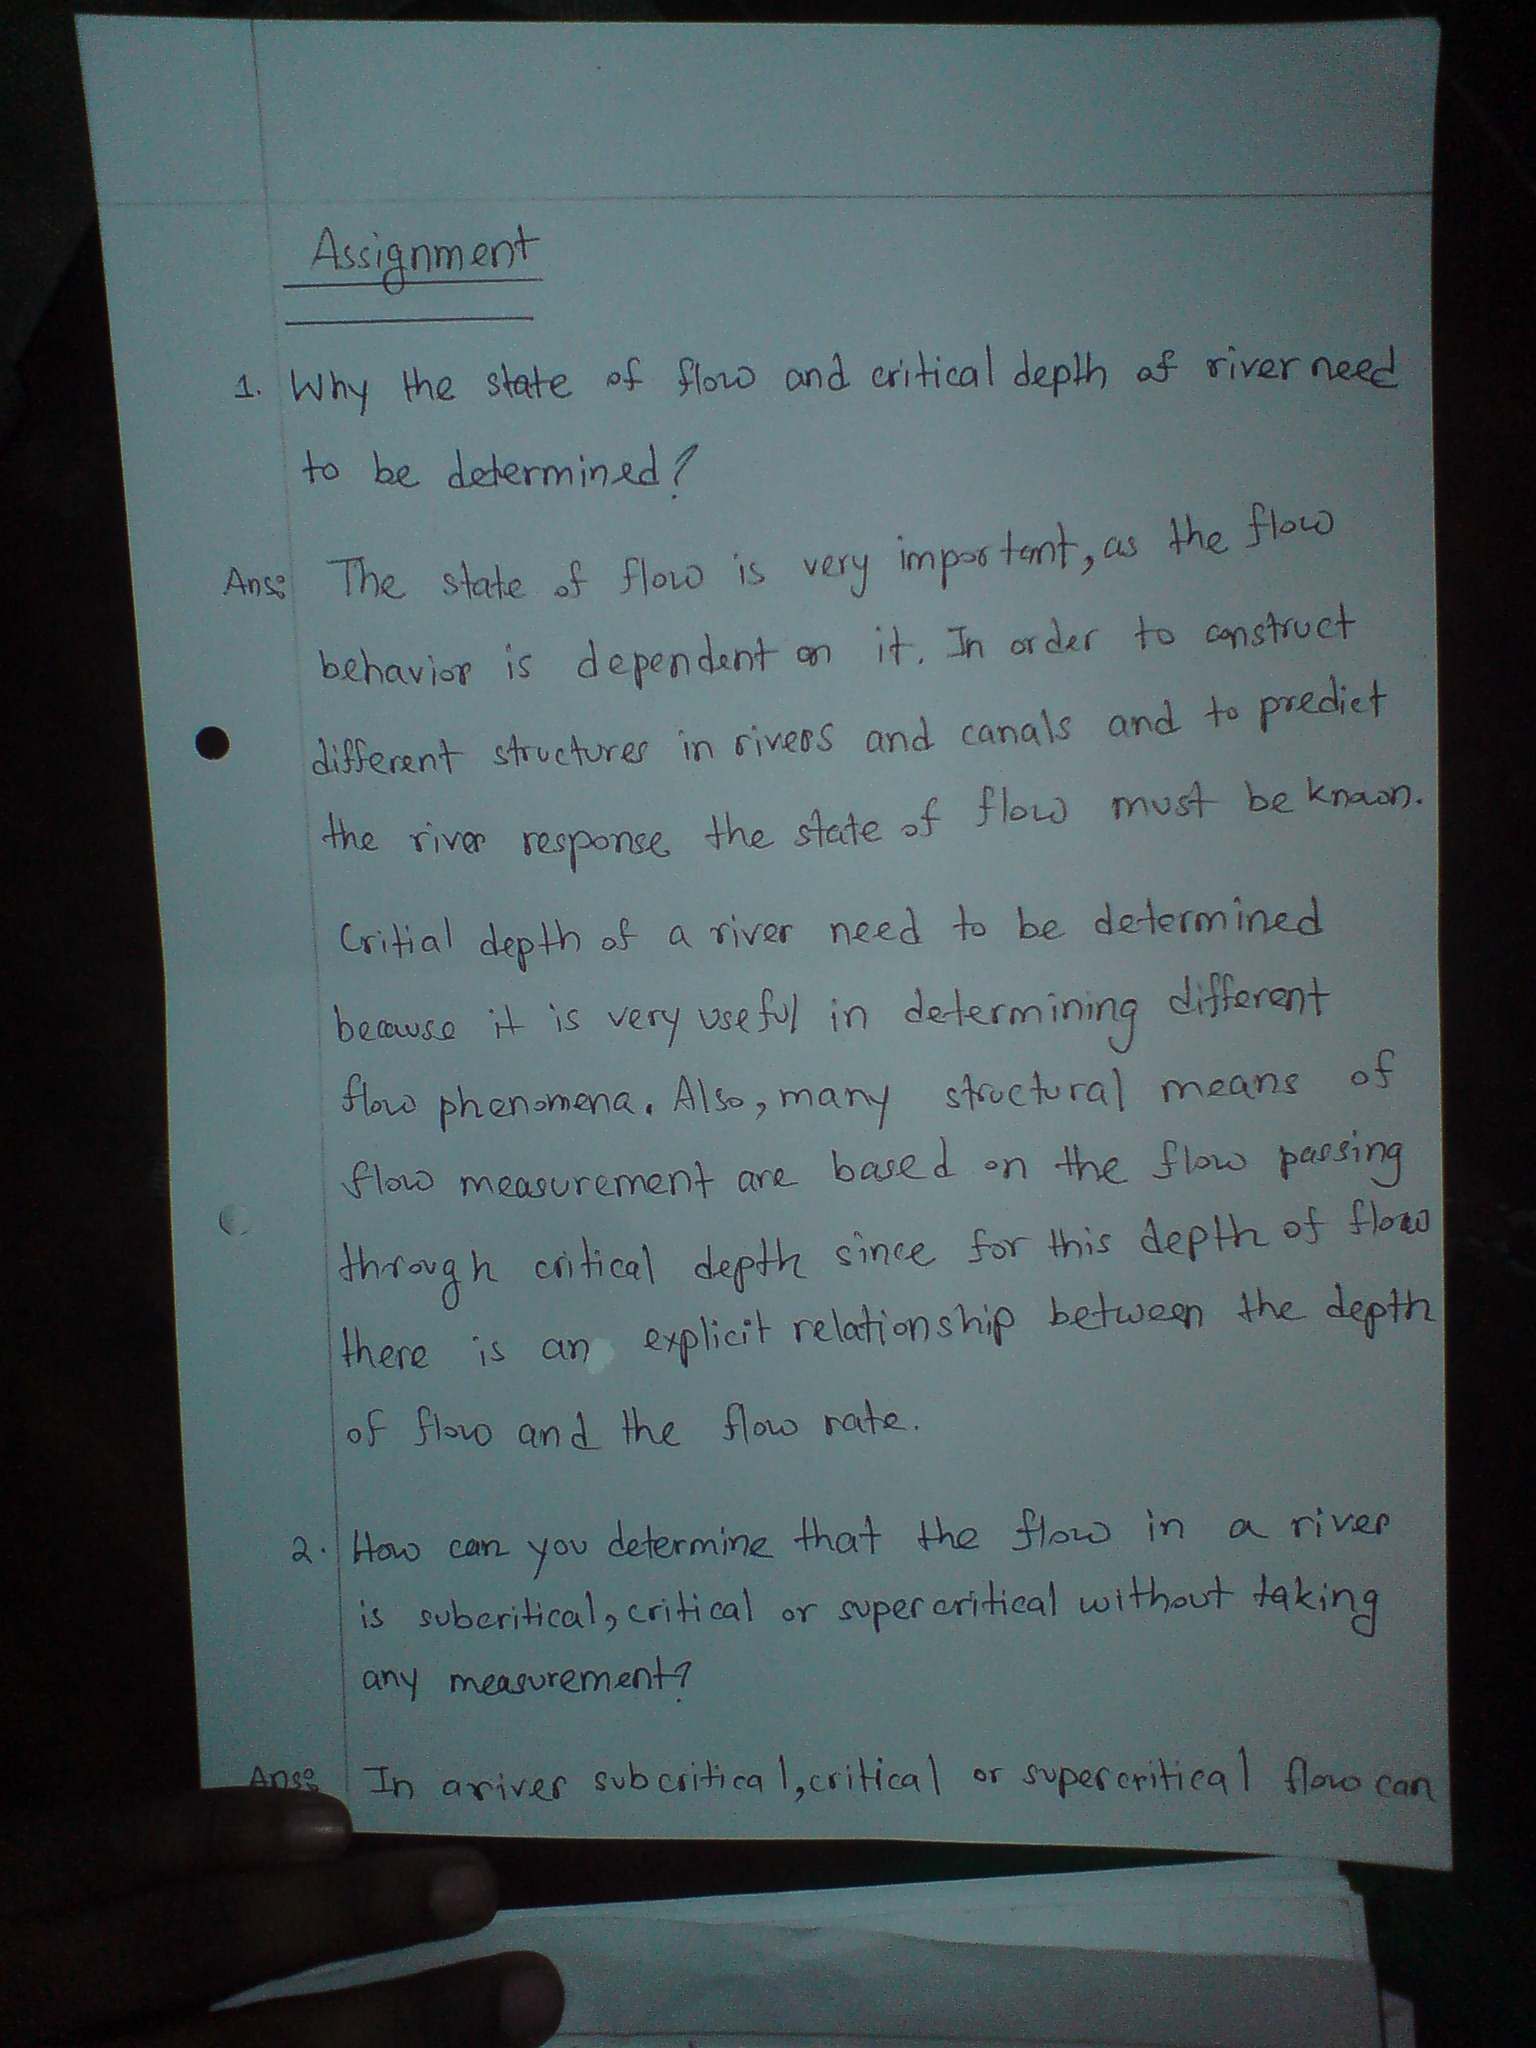 Assignment
1. Why the state of flow and critical depth of river need
to be determined?
Ans: The state of flow is very important, as the flow
behavior is dependent on it. In order to construct
different structures in rivers and canals and to predict
the river response the state of flow must be known.
Critial depth of a river need to be determined
because it is very useful in determining different
flow phenomena. Also, many structural means of
flow measurement are based on the flow passing
through critical depth since for this depth of flow
there is an explicit relationship between the depth
of flow and the flow rate.
2. How can you determine that the flow in a river
is subcritical, critical or supercritical without taking
any measurement?
Ans: In a river subcritical, critical or supercritical flow can